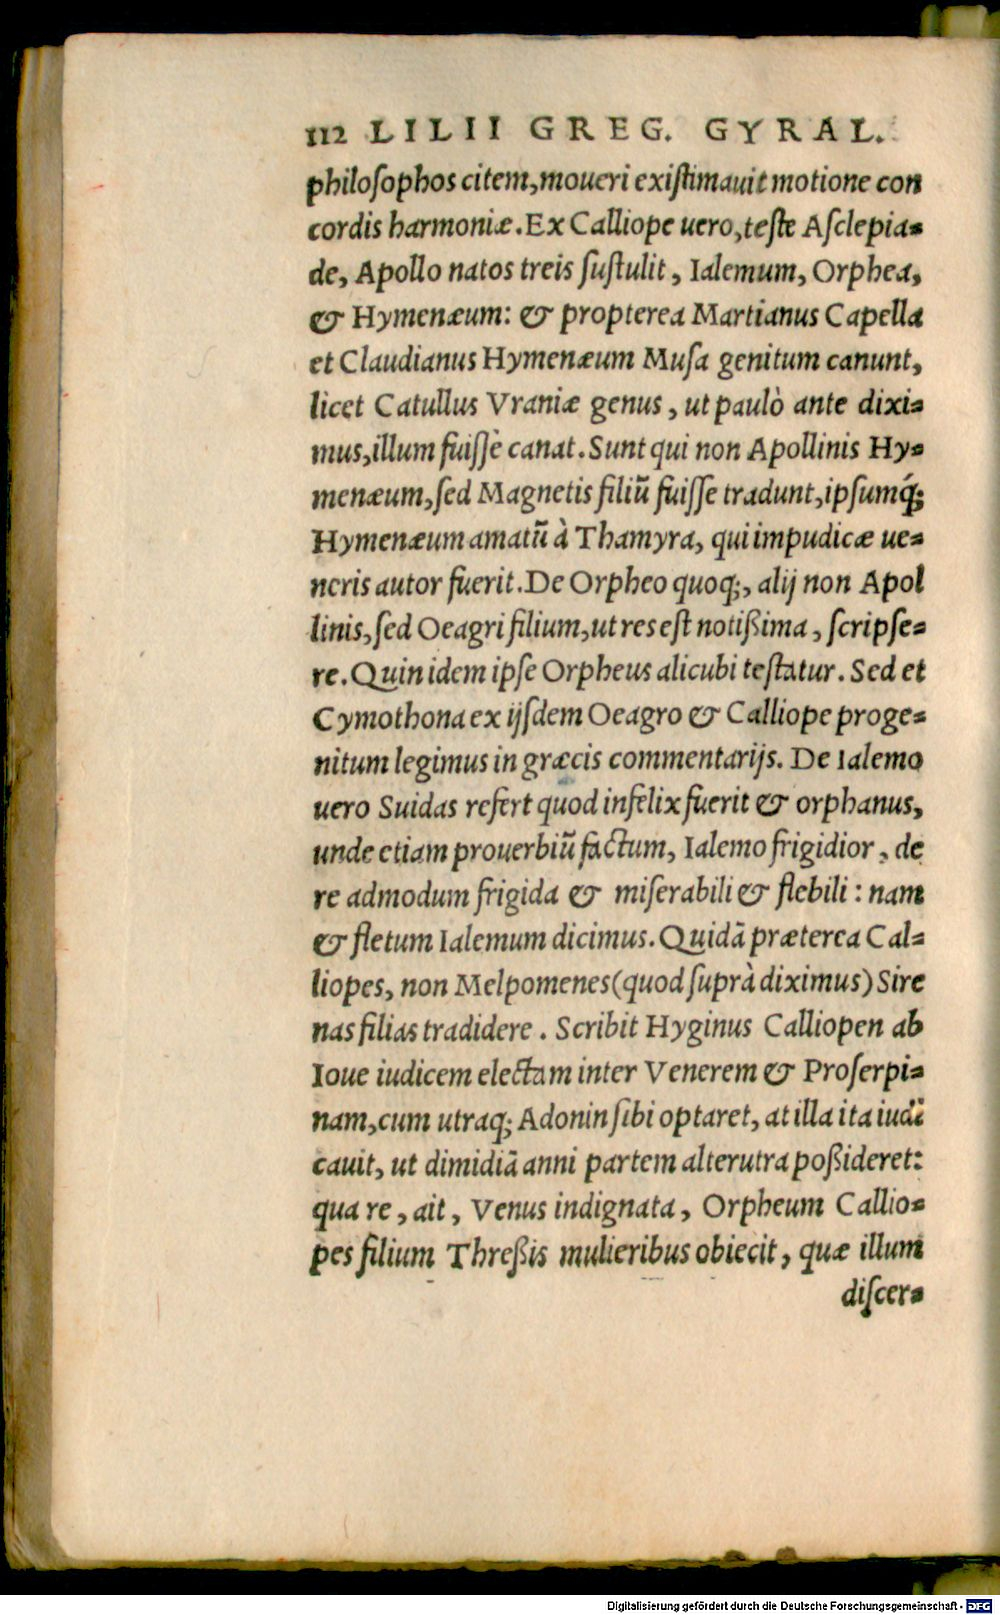 112 LILII GREG. GYRAL.
philoſophos citem, moueri exiſtimauit motione con
cordis harmoniæ. Ex Calliope uero, teſte Aſclepia-
de, Apollo natos treis ſuſtulit, Ialemum, Orphea,
& Hymenæum: & propterea Martianus Capella
et Claudianus Hymenæum Muſa genitum canunt,
licet Catullus Vraniæ genus, ut paulò ante dixi-
mus, illum fuiſſè canat. Sunt qui non Apollinis Hy-
menæum, ſed Magnetis filiũ fuiſſe tradunt, ipſumq́;
Hymenæum amatũ à Thamyra, qui impudicæ ue-
neris autor fuerit. De Orpheo quoq;, alij non Apol
linis, ſed Oeagri filium, ut res eſt notißima, ſcripſe-
re. Quin idem ipſe Orpheus alicubi teſtatur. Sed et
Cymothona ex ijſdem Oeagro & Calliope proge-
nitum legimus in græcis commentarijs. De Ialemo
uero Suidas refert quod infelix fuerit & orphanus,
unde etiam prouerbiũ factum, Ialemo frigidior, de
re admodum frigida & miſerabili & flebili: nam
& fletum Ialemum dicimus. Quidã præterea Cal-
liopes, non Melpomenes (quod ſuprà diximus) Sire
nas filias tradidere. Scribit Hyginus Calliopen ab
Ioue iudicem electam inter Venerem & Proſerpi-
nam, cum utraq; Adonin ſibi optaret, at illa ita iudi
cauit, ut dimidiã anni partem alterutra poßideret:
qua re, ait, Venus indignata, Orpheum Callio-
pes filium Threßis mulieribus obiecit, quæ illum
diſcer-
Digitalisierung gefördert durch die Deutsche Forschungsgemeinschaft - DFG